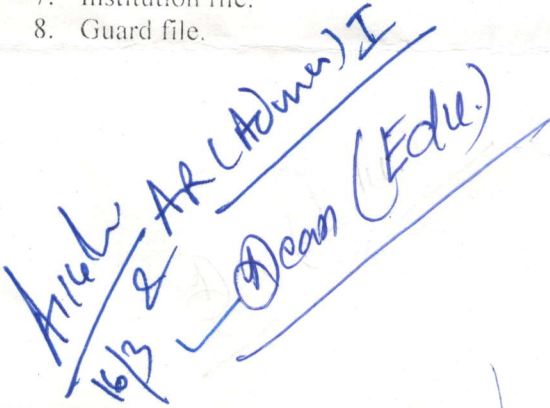 7. Institution file.
8. Guard file.
AR (Admn) I
&
Dean (Edu.)
16/3